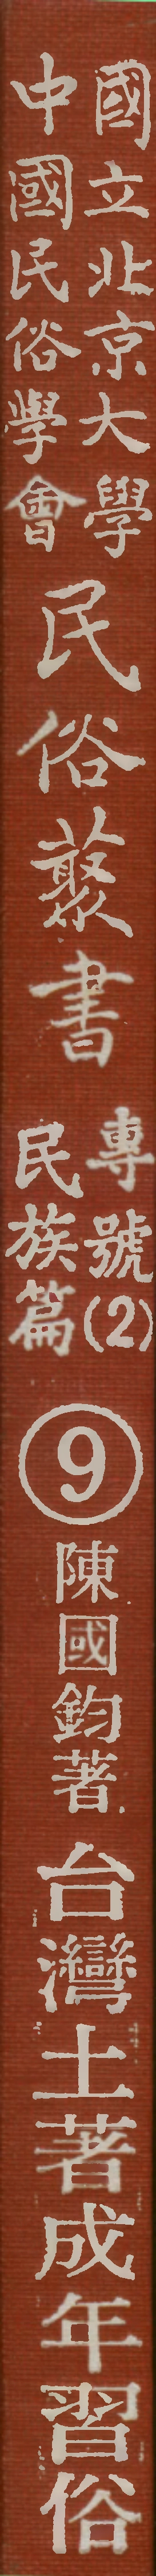 國立北京大學
中國民俗學會
民俗叢書
專號(2)
民族篇
9
陳國鈞著
台灣土著成年習俗